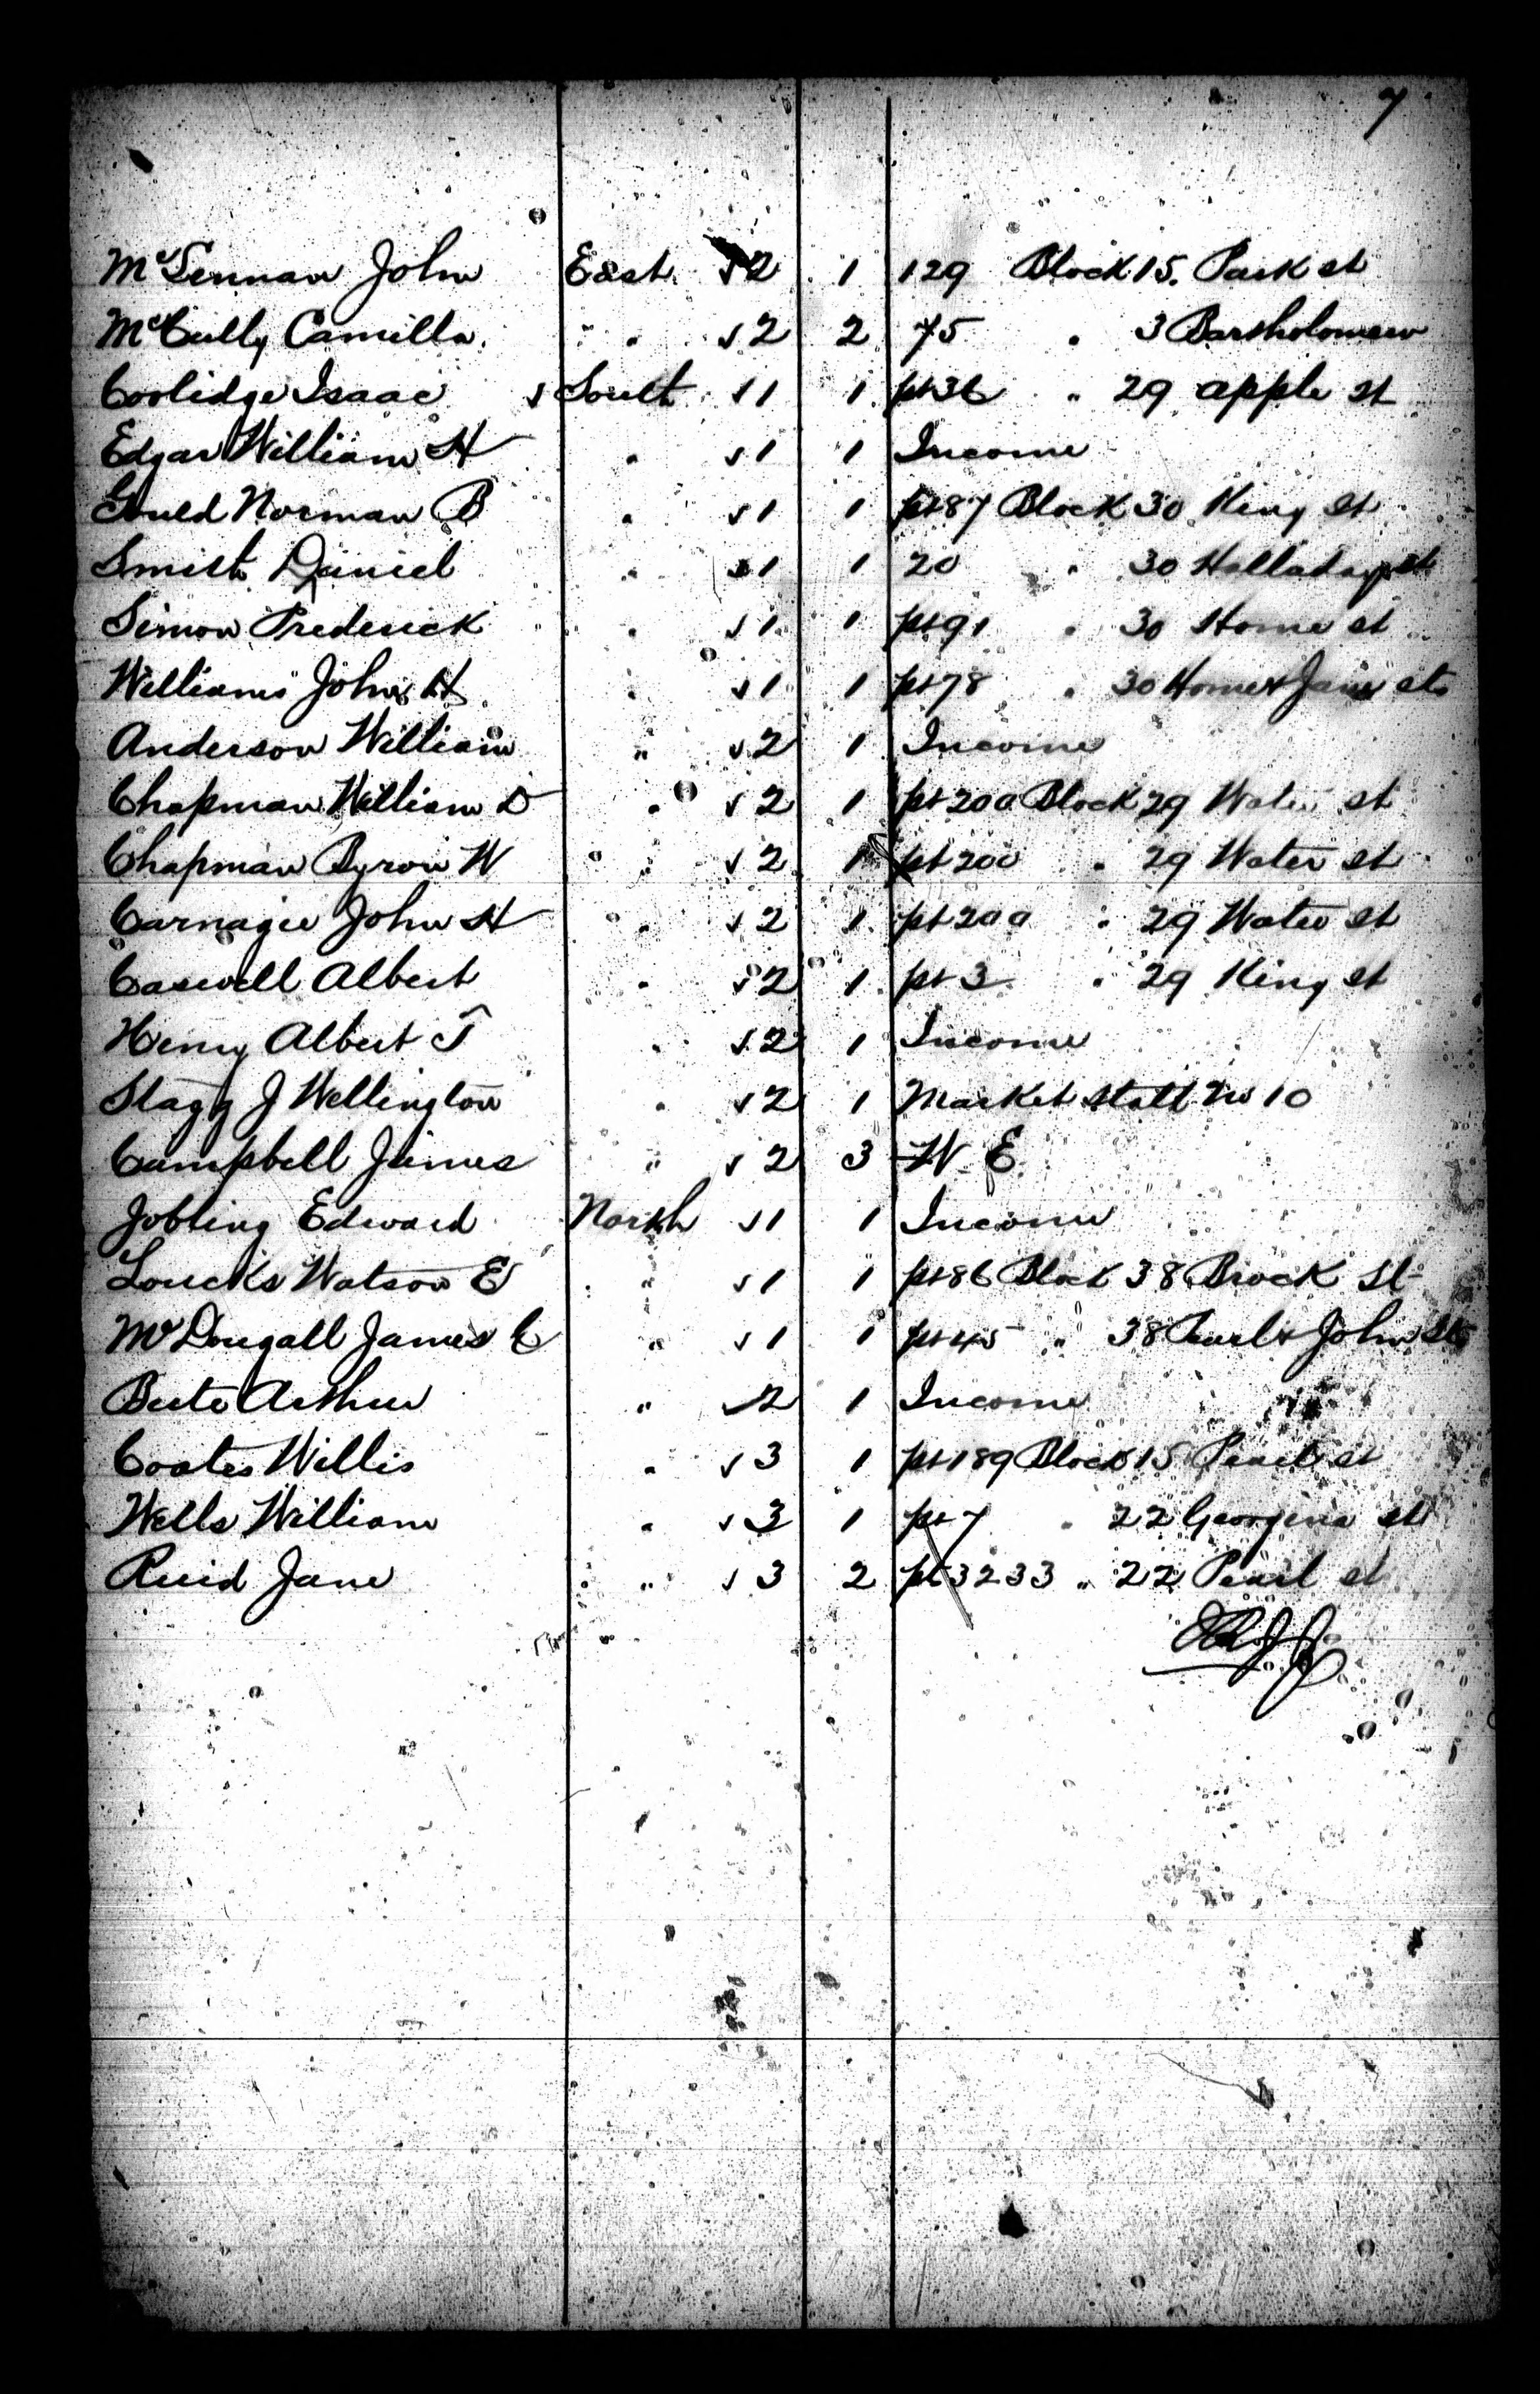 7
McLennan John East √2 1 129 Block 15. Park st
McCully Camilla. " √2 2 75 " 3 Bartholomew
Coolidge Isaac √ South √1 1 pt 36 " 29 apple st
Edgar William H " √1 1 Income
Gould Norman B " √1 1 pt 87 Block 30 King st
Smith Daniel " √1 1 20 " 30 Halladay st
Simon Frederick " √1 1 pt 91 " 30 Home st
Williams John H " √1 1 pt 78 " 30 Home & Jane sts
Anderson William " √2 1 Income
Chapman William D " √2 1 pt 200 Block 29 Water st
Chapman Byron W " √2 1 pt 200 " 29 Water st
Carnagie John H " √2 1 pt 200 " 29 Water st
Caswell Albert " √2 1 pt 3 " 29 King st
Henry Albert T " √2 1 Income
Stagg J Wellington " √2 1 Market Stall No 10
Campbell James " √2 3 W E
Jobling Edward North √1 1 Income
Loucks Watson E " √1 1 pt 86 Block 38 Brock St
McDougall James C " √1 1 pt 45 " 38 Pearl & John Sts
Arthur " √2 1 Income
Coates Willis " √3 1 pt 189 Block 15 Pearl st
Wells William " √3 1 pt 7 " 22 Georgina st
Reid Jane " √3 2 pt 32 33 " 22 Pearl st